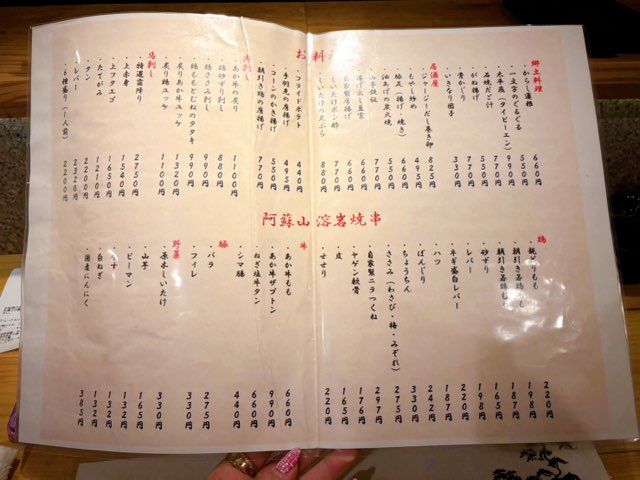 お料理
郷土料理
・からし蓮根 660円
・一文字のぐるぐる 550円
・太平燕（タイピーエン） 990円
・石焼だご汁
・がね揚げ
・いきなり団子 330円
居酒屋
・ジャージーだし巻き卵 825円
・もやし炒め 495円
・豚足（揚げ・焼き）
・油あげの炭火焼
・山芋鉄板
・揚げ出し豆富
・自家製厚揚げ
・しいたけポン酢 660円
・しいたけの天ぷら 880円
・フライドポテト 440円
・手羽先の唐揚げ 495円
・コーンのかき揚げ 550円
・朝引き鶏の唐揚げ 770円
肉刺し
・あか牛の炙り 1100円
・鶏ずり刺し 880円
・鶏ささみ刺し 990円
・鶏ももとむねのタタキ 990円
・炙りあか牛ユッケ 1320円
・炙り鶏ユッケ 1100円
馬刺し
・特選霜降り 2750円
・上赤身 1540円
・上フタエゴ 1650円
・たてがみ 1210円
・タン 2200円
・レバー 2320円
・6種盛り（1人前） 2200円
阿蘇山溶岩焼き串
鶏
・朝びきもも 220円
・砂ずり 165円
・レバー 198円
・ネギ盛白レバー 220円
・ハツ 187円
・ぼんじり 242円
・ちょうちん 330円
・ささみ（わさび・梅・みぞれ） 275円
・自家製ニラつくね 297円
・ヤゲン軟骨 176円
・皮 165円
・せせり 220円
牛
・あか牛もも 660円
・あか牛ザブトン 990円
・ねぎ塩牛タン 660円
豚
・シマ腸 440円
・バラ 275円
・フィレ 330円
野菜
・原木しいたけ 330円
・山芋 165円
・ピーマン 132円
・なす 165円
・白ねぎ 132円
・国産にんにく 385円